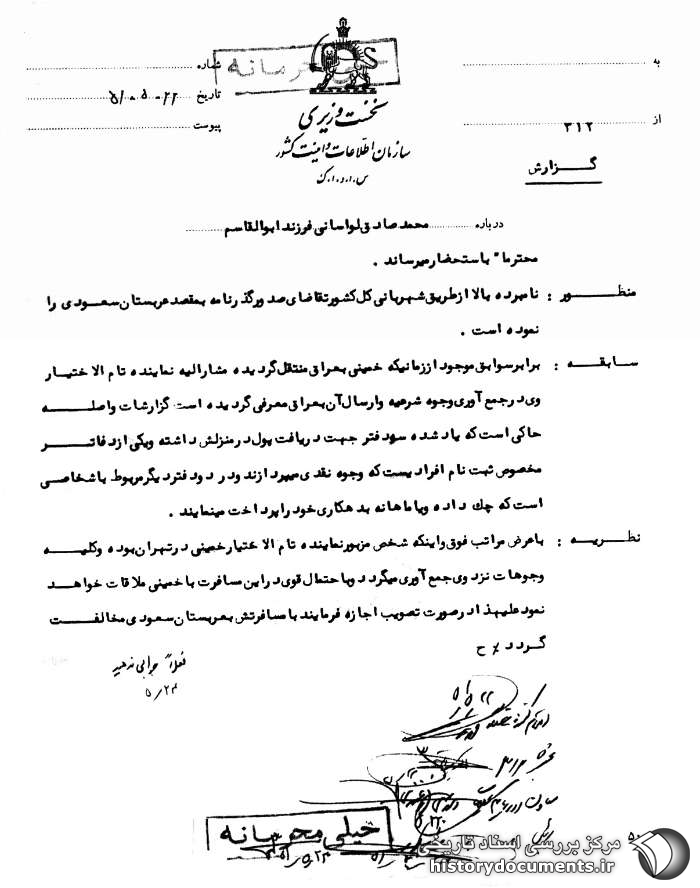 خیلی محرمانه
نخست وزیری
سازمان اطلاعات و امنیت کشور
س.ا.و.ا.ک
به
از ۳۱۲
شماره
تاریخ ۵۱-۵-۲۲
پیوست
گزارش
درباره محمد صادق لواسانی فرزند ابوالقاسم
محترما" باستحضار میرساند .
منظور : نامبرده بالا از طریق شهربانی کل کشور تقاضای صدور گذرنامه بمقصد عربستان سعودی را
نموده است .
سابقه : برابر سوابق موجود از زمانیکه خمینی بعراق منتقل گردیده مشارالیه نماینده تام الاختیار
وی در جمع آوری وجوه شرعیه و ارسال آن بعراق معرفی گردیده است گزارشات واصله
حاکی است که یاد شده سه دفتر جهت دریافت پول در منزلش داشته و یکی از دفاتر
مخصوص ثبت نام افرادیست که وجوه نقدی میپردازند و در دو دفتر دیگر مربوط باشخاصی
است که چک داده و یا ماهانه بدهکاری خود را پرداخت مینمایند .
نظریه : باعرض مراتب فوق و اینکه شخص مزبور نماینده تام الاختیار خمینی در تهران بوده و کلیه
وجوهات نزد وی جمع آوری میگردد و با احتمال قوی در این مسافرت با خمینی ملاقات خواهد
نمود علیهذا در صورت تصویب اجازه فرمایند با مسافرتش بعربستان سعودی مخالفت
گردد ٪ ح
فعلاً جوابی ندهید
۵/۲۳
خیلی محرمانه
مرکز بررسی اسناد تاریخی
historydocuments.ir